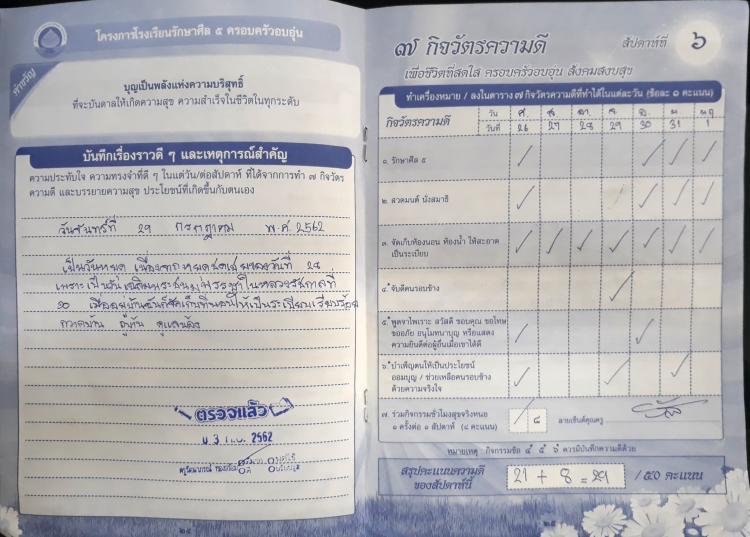 โครงการโรงเรียนรักษาศีล ๕ ครอบครัวอบอุ่น
คำขวัญ
บุญเป็นพลังแห่งความบริสุทธิ์
ที่จะบันดาลให้เกิดความสุข ความสำเร็จในชีวิตในทุกระดับ
บันทึกเรื่องราวดี ๆ และเหตุการณ์สำคัญ
ความประทับใจ ความทรงจำที่ดี ๆ ในแต่วัน/ต่อสัปดาห์ ที่ได้จากการทำ ๗ กิจวัตร
ความดี และบรรยายความสุข ประโยชน์ที่เกิดขึ้นกับตนเอง
วันจันทร์ที่ 29 กรกฎาคม พ.ศ. 2562
เป็นวันหยุด เนื่องจากหยุดชดเชยของวันที่ 28
เพราะเป็นวันเฉลิมพระชนมพรรษาในหลวงรัชกาลที่
10
ให้เป็นระเบียบเรียบร้อย
กวาดบ้าน ถูบ้าน
ตรวจแล้ว
2562
๒๔
๗ กิจวัตรความดี
สัปดาห์ที่ ๖
เพื่อชีวิตที่สดใส ครอบครัวอบอุ่น สังคมสงบสุข
ทำเครื่องหมาย / ลงในตาราง ๗ กิจวัตรความดีที่ทำได้ในแต่ละวัน (ข้อละ ๑ คะแนน)
กิจวัตรความดี
วัน ศ. ส. อา. จ. อ. พ. พฤ
วันที่ 26 27 28 29 30 31 1
๑. รักษาศีล ๕ / / / /
๒. สวดมนต์ นั่งสมาธิ / / / / /
๓. จัดเก็บห้องนอน ห้องน้ำ ให้สะอาด / / / / / / /
เป็นระเบียบ
๔. จับดีคนรอบข้าง /
๕. พูดจาไพเราะ สวัสดี ขอบคุณ ขอโทษ / /
ขออภัย อนุโมทนาบุญ หรือแสดง
ความยินดีต่อผู้อื่นเมื่อเขาได้ดี
๖. บำเพ็ญตนให้เป็นประโยชน์ / / /
ออมบุญ / ช่วยเหลือคนรอบข้าง
ด้วยความจริงใจ
๗. ร่วมกิจกรรมชั่วโมงสุขจริงหนอ / ๘ ลายเซ็นต์คุณครู
๑ ครั้งต่อ ๑ สัปดาห์ (๘ คะแนน)
หมายเหตุ กิจกรรมข้อ ๔ ๕ ๖ ควรมีบันทึกความดีด้วย
สรุปคะแนนความดี
ของสัปดาห์นี้
21 + 8 = 29 / ๕๐ คะแนน
๒๕